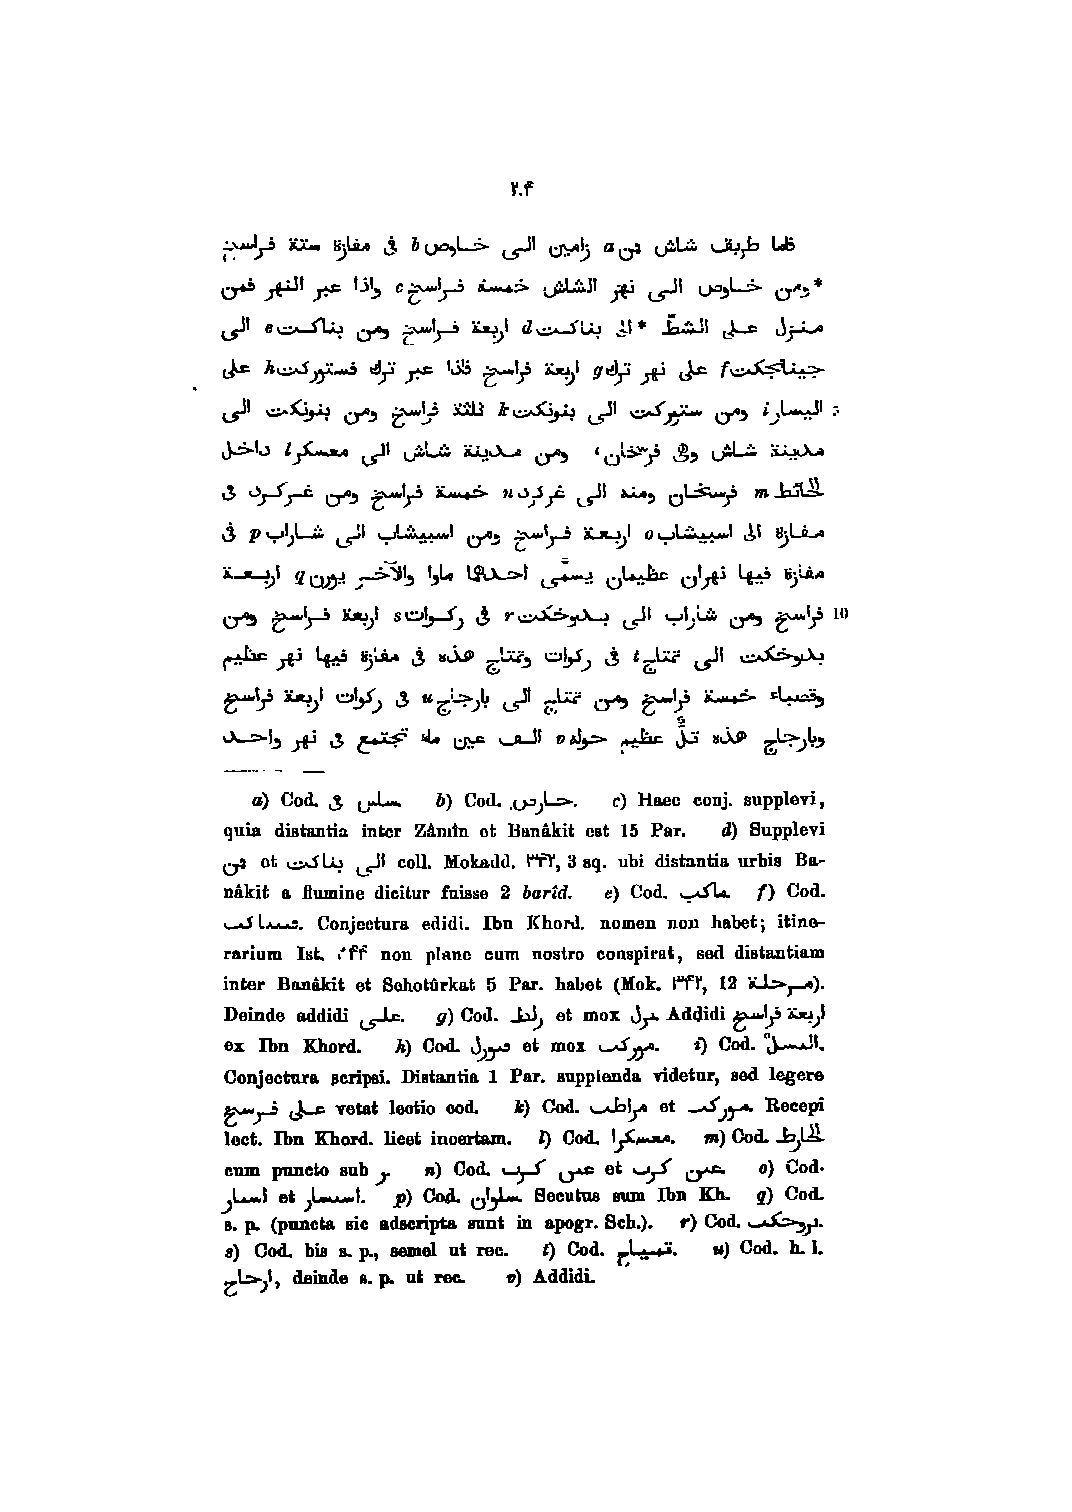 ٢٠۴
فاما طريق شاش من a زامين الى خاوص b فى مفازة ستة فراسخ
*ومن خاوص الى نهر الشاش خمسة فراسخ c واذا عبر النهر فمن
منزل على الشطّ *الى بناكت d اربعة فراسخ ومن بناكت e الى
جينانجكت f على نهر ترك g اربعة فراسخ فاذا عبر ترك فستوركت h على
5 اليسار i ومن ستوركت الى بنونكت k ثلثة فراسخ ومن بنونكت الى
مدينة شاش وفى فرسخان، ومن مدينة شاش الى معسكر l داخل
الحائط m فرسخان ومنه الى غركرد n خمسة فراسخ ومن غركرد فى
مفازة الى اسبيشاب o اربعة فراسخ ومن اسبيشاب الى شاراب p فى
مفازة فيها نهران عظيمان يسمّى احدهما ماوا والآخر يورن q اربعة
10 فراسخ ومن شاراب الى بدوخكت r فى ركوات s اربعة فراسخ ومن
بدوخكت الى تمتاج t فى ركوات وتمتاج هذه فى مفازة فيها نهر عظيم
وقصباء خمسة فراسخ ومن تمتاج الى بارجاج u فى ركوات اربعة فراسخ
وبارجاج هذه تلّ عظيم حوله v الف عين ماء تجتمع فى نهر واحد
a) Cod. b) Cod. c) Haec conj. supplevi,
quia distantia inter Zâmîn et Banâkit est 15 Par. d) Supplevi
من et الى بناكت coll. Mokadd. ٣۴٢, 3 sq. ubi distantia urbis Ba-
nâkit a flumine dicitur fuisse 2 barîd. e) Cod. f) Cod.
Conjectura edidi. Ibn Khord. nomen non habet; itine-
rarium Ist. non plane cum nostro conspirat, sed distantiam
inter Banâkit et Schotûrkat 5 Par. habet (Mok. ٣۴٢, 12 مرحلة).
Deinde addidi على. g) Cod. et mox Addidi اربعة فراسخ
ex Ibn Khord. h) Cod. et mox i) Cod.
Conjectura scripsi. Distantia 1 Par. supplenda videtur, sed legere
على فرسخ vetat lectio cod. k) Cod. et Recepi
lect. Ibn Khord. licet incertam. l) Cod. معسكرا. m) Cod.
cum puncto sub ر. n) Cod. et o) Cod.
et p) Cod. Secutus sum Ibn Kh. q) Cod.
s. p. (puncta sic adscripta sunt in apogr. Sch.). r) Cod.
s) Cod. bis s. p., semel ut rec. t) Cod. u) Cod. h. l.
deinde s. p. ut rec. v) Addidi.